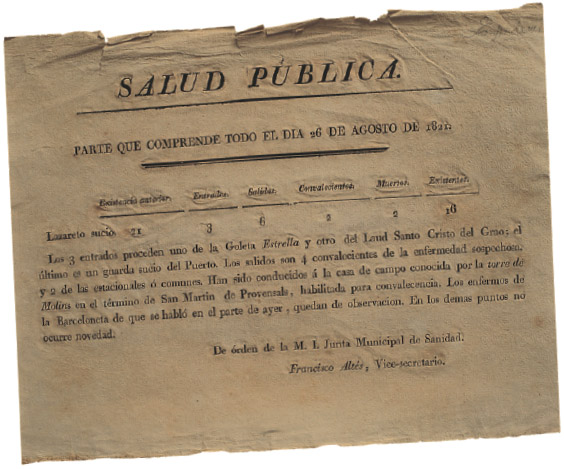 SALUD PÚBLICA.
PARTE QUE COMPRENDE TODO EL DIA 26 DE AGOSTO DE 1821.
Existencia anterior. Entrados. Salidos. Convalecientes. Muertos. Existentes.
Lazareto sucio. 21 3 6 2 2 16
Los 3 entrados proceden uno de la Goleta Estrella y otro del Laud Santo Cristo del Grao; el
último es un guarda sucio del Puerto. Los salidos son 4 convalecientes de la enfermedad sospechosa,
y 2 de las estacionales ó comunes. Han sido conducidos á la casa de campo conocida por la torre de
Molins en el término de San Martin de Provensals, habilitada para convalecencia. Los enfermos de
la Barceloneta de que se habló en el parte de ayer, quedan de observacion. En los demas puntos no
ocurre novedad.
De órden de la M. I. Junta Municipal de Sanidad.
Francisco Altés, Vice-secretario.